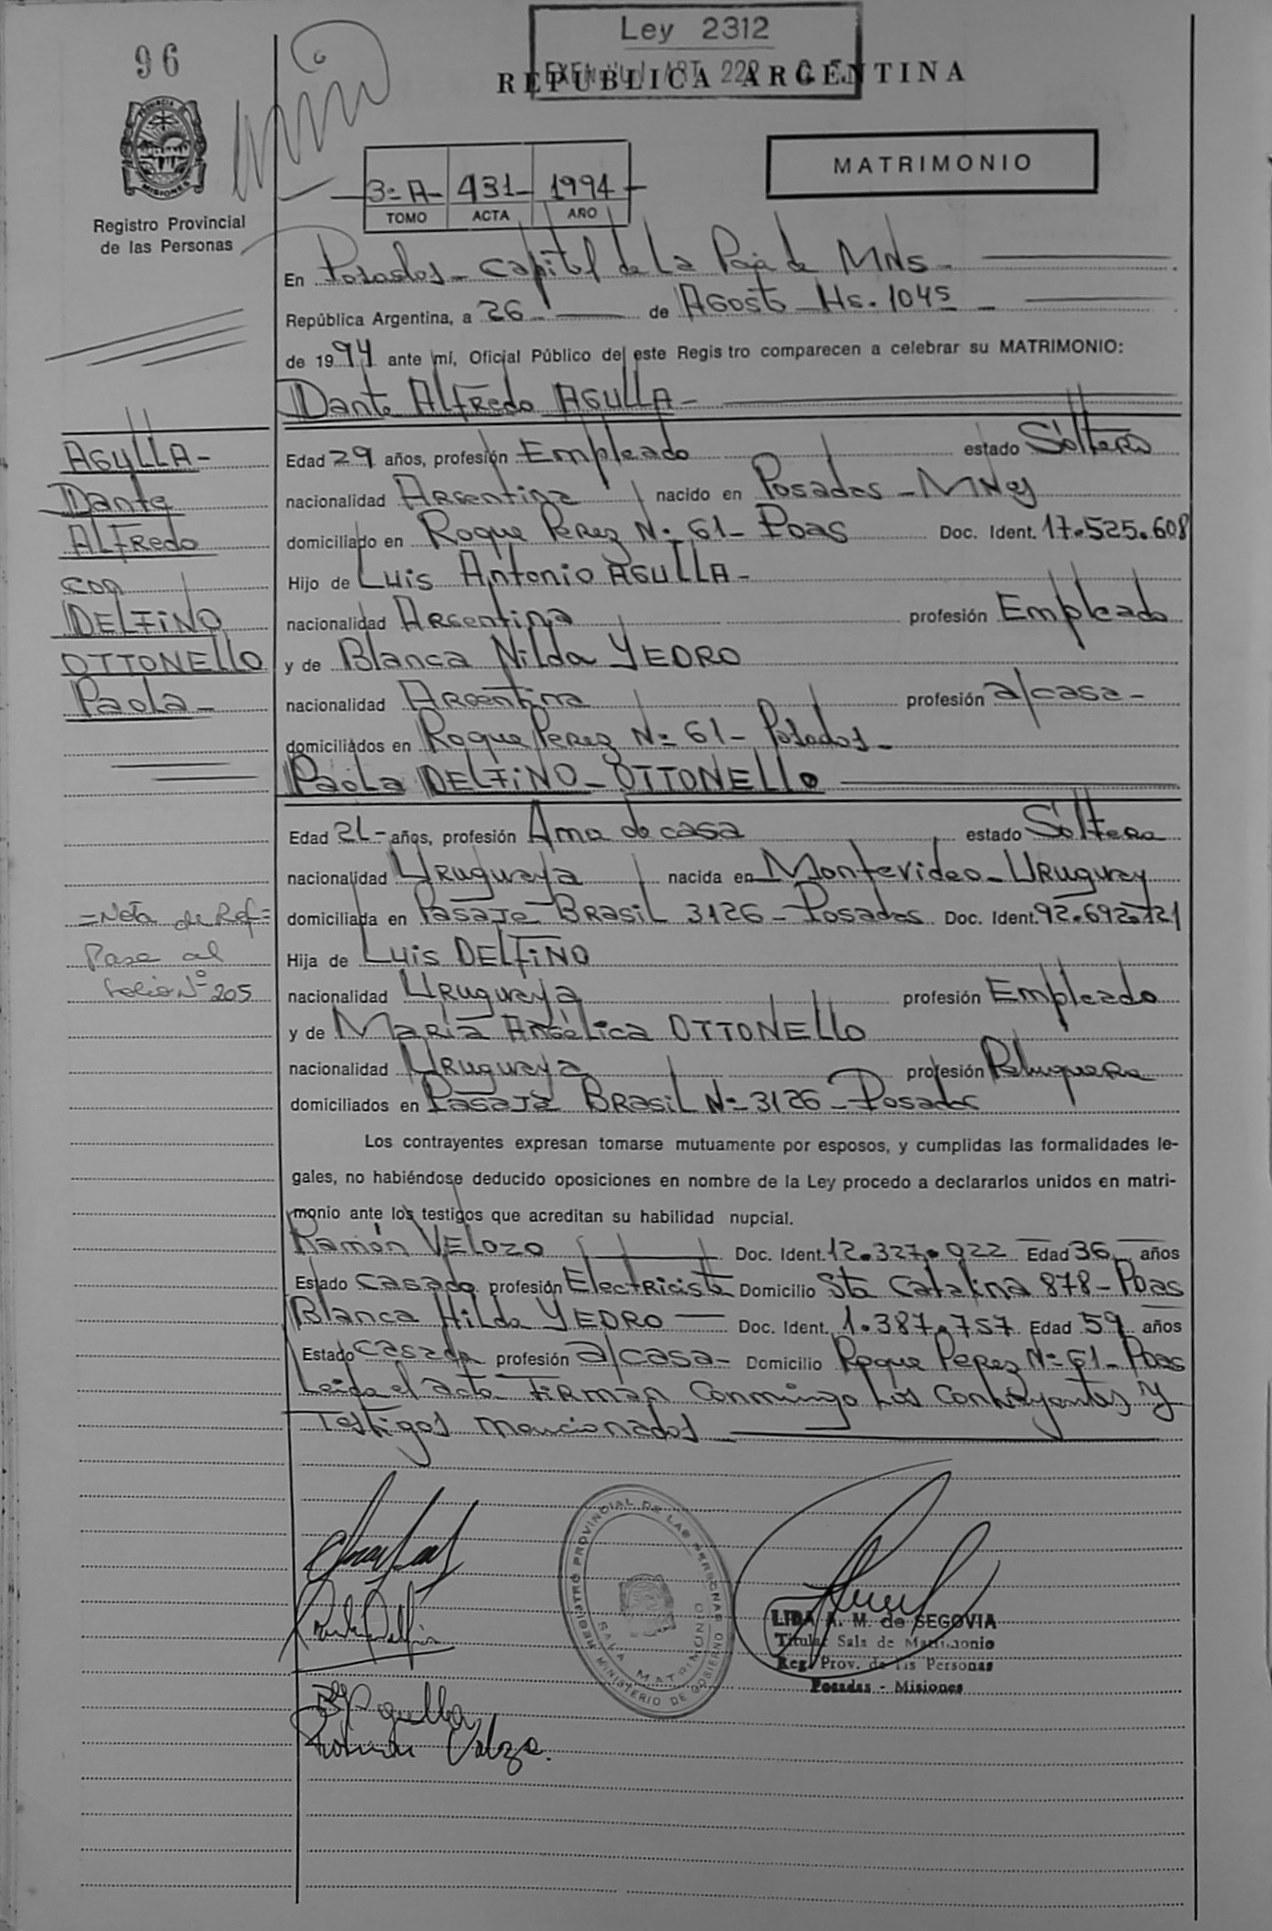 96
Ley 2312
REPUBLICA ARGENTINA
MATRIMONIO
3=A- 431- 1994-
TOMO ACTA AÑO
PROVINCIA DE MISIONES
Registro Provincial
de las Personas
En Posadas - Capital de La Pcia de MNS -
República Argentina, a 26 - de Agosto - Hs. 1045 -
de 1994 ante mí, Oficial Público de este Registro comparecen a celebrar su MATRIMONIO:
Dante Alfredo AGULLA -
AGULLA -
Dante
Alfredo
con
DELFINO
OTTONELLO
Paola -
Edad 29 años, profesión Empleado estado Soltero
nacionalidad Argentina nacido en Posadas - MNes
domiciliado en Roque Perez N= 61 - Pdas Doc. Ident. 17.525.608
Hijo de Luis Antonio AGULLA -
nacionalidad Argentina profesión Empleado
y de Blanca Nilda YEDRO
nacionalidad Argentina profesión a/casa -
domiciliados en Roque Perez N= 61 - Posadas -
Paola DELFINO - OTTONELLO
Edad 21 - años, profesión Ama de casa estado Soltera
nacionalidad Uruguaya nacida en Montevideo - Uruguay
domiciliada en Pasaje Brasil 3126 - Posadas Doc. Ident. 92.692.721
Hija de Luis DELFINO
nacionalidad Uruguaya profesión Empleado
y de Maria Angélica OTTONELLO
nacionalidad Uruguaya profesión Peluquera
domiciliados en Pasaje Brasil N= 3126 - Posadas
=Nota de Ref=
Pase al
folio Nº 205
Los contrayentes expresan tomarse mutuamente por esposos, y cumplidas las formalidades le-
gales, no habiéndose deducido oposiciones en nombre de la Ley procedo a declararlos unidos en matri-
monio ante los testigos que acreditan su habilidad nupcial.
Ramón VELOZO Doc. Ident. 12.327.922 Edad 36 años
Estado casado profesión Electricista Domicilio Sta Catalina 878 - Pdas
Blanca Hilda YEDRO Doc. Ident. 1.387.757 Edad 59 años
Estado casada profesión a/casa - Domicilio Roque Perez N= 61 - Pdas
Leida el acta Firman Conmingo Los Contrayentes y
Testigos mencionados
REGISTRO PROVINCIAL DE LAS PERSONAS
SALA MATRIMONIO
MINISTERIO DE GOBIERNO
LIDA A. M. de SEGOVIA
Titular Sala de Matrimonio
Reg. Prov. de las Personas
Posadas - Misiones
Paola Delfin
Ramon Velozo.